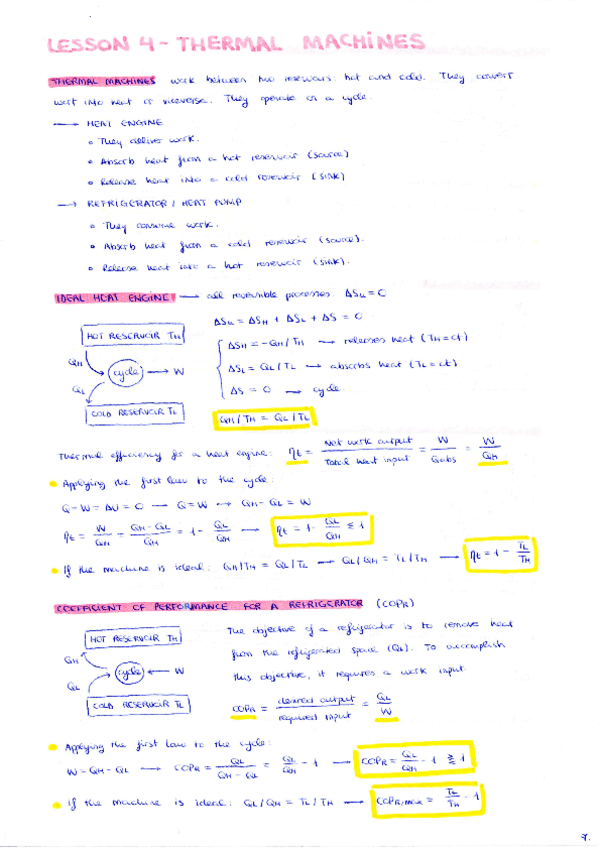 LESSON 4 - THERMAL MACHINES
THERMAL MACHINES work between two reservoirs: hot and cold. They convert
work into heat or viceversa. They operate on a cycle.
→ HEAT ENGINE
• They deliver work.
• Absorb heat from a hot reservoir (source)
• Release heat into a cold reservoir (sink)
→ REFRIGERATOR / HEAT PUMP
• They consume work.
• Absorb heat from a cold reservoir (source).
• Release heat into a hot reservoir (sink).
IDEAL HEAT ENGINE → all reversible processes. ΔSu = 0
ΔSu = ΔSH + ΔSL + ΔS = 0
HOT RESERVOIR TH
ΔSH = -QH / TH → releases heat (TH = ct)
QH
cycle → W
ΔSL = QL / TL → absorbs heat (TL = ct)
QL
ΔS = 0 → cycle.
COLD RESERVOIR TL
QH / TH = QL / TL
Thermal efficiency for a heat engine: ηt = Net work output / Total heat input = W / Qabs = W / QH
• Applying the first law to the cycle:
Q - W = ΔU = 0 → Q = W → QH - QL = W
ηt = W / QH = QH - QL / QH = 1 - QL / QH → ηt = 1 - QL / QH ≤ 1
• If the machine is ideal: QH / TH = QL / TL → QL / QH = TL / TH → ηt = 1 - TL / TH
COEFFICIENT OF PERFORMANCE FOR A REFRIGERATOR (COPR)
HOT RESERVOIR TH
The objective of a refrigerator is to remove heat
QH
from the refrigerated space (QL). To accomplish
cycle ← W
this objective, it requires a work input.
QL
COLD RESERVOIR TL
COPR = desired output / required input = QL / W
• Applying the first law to the cycle:
W = QH - QL → COPR = QL / QH - QL = QL / QH - 1 → COPR = QL / QH - 1 ≷ 1
• If the machine is ideal: QL / QH = TL / TH → COPR,max = TL / TH - 1